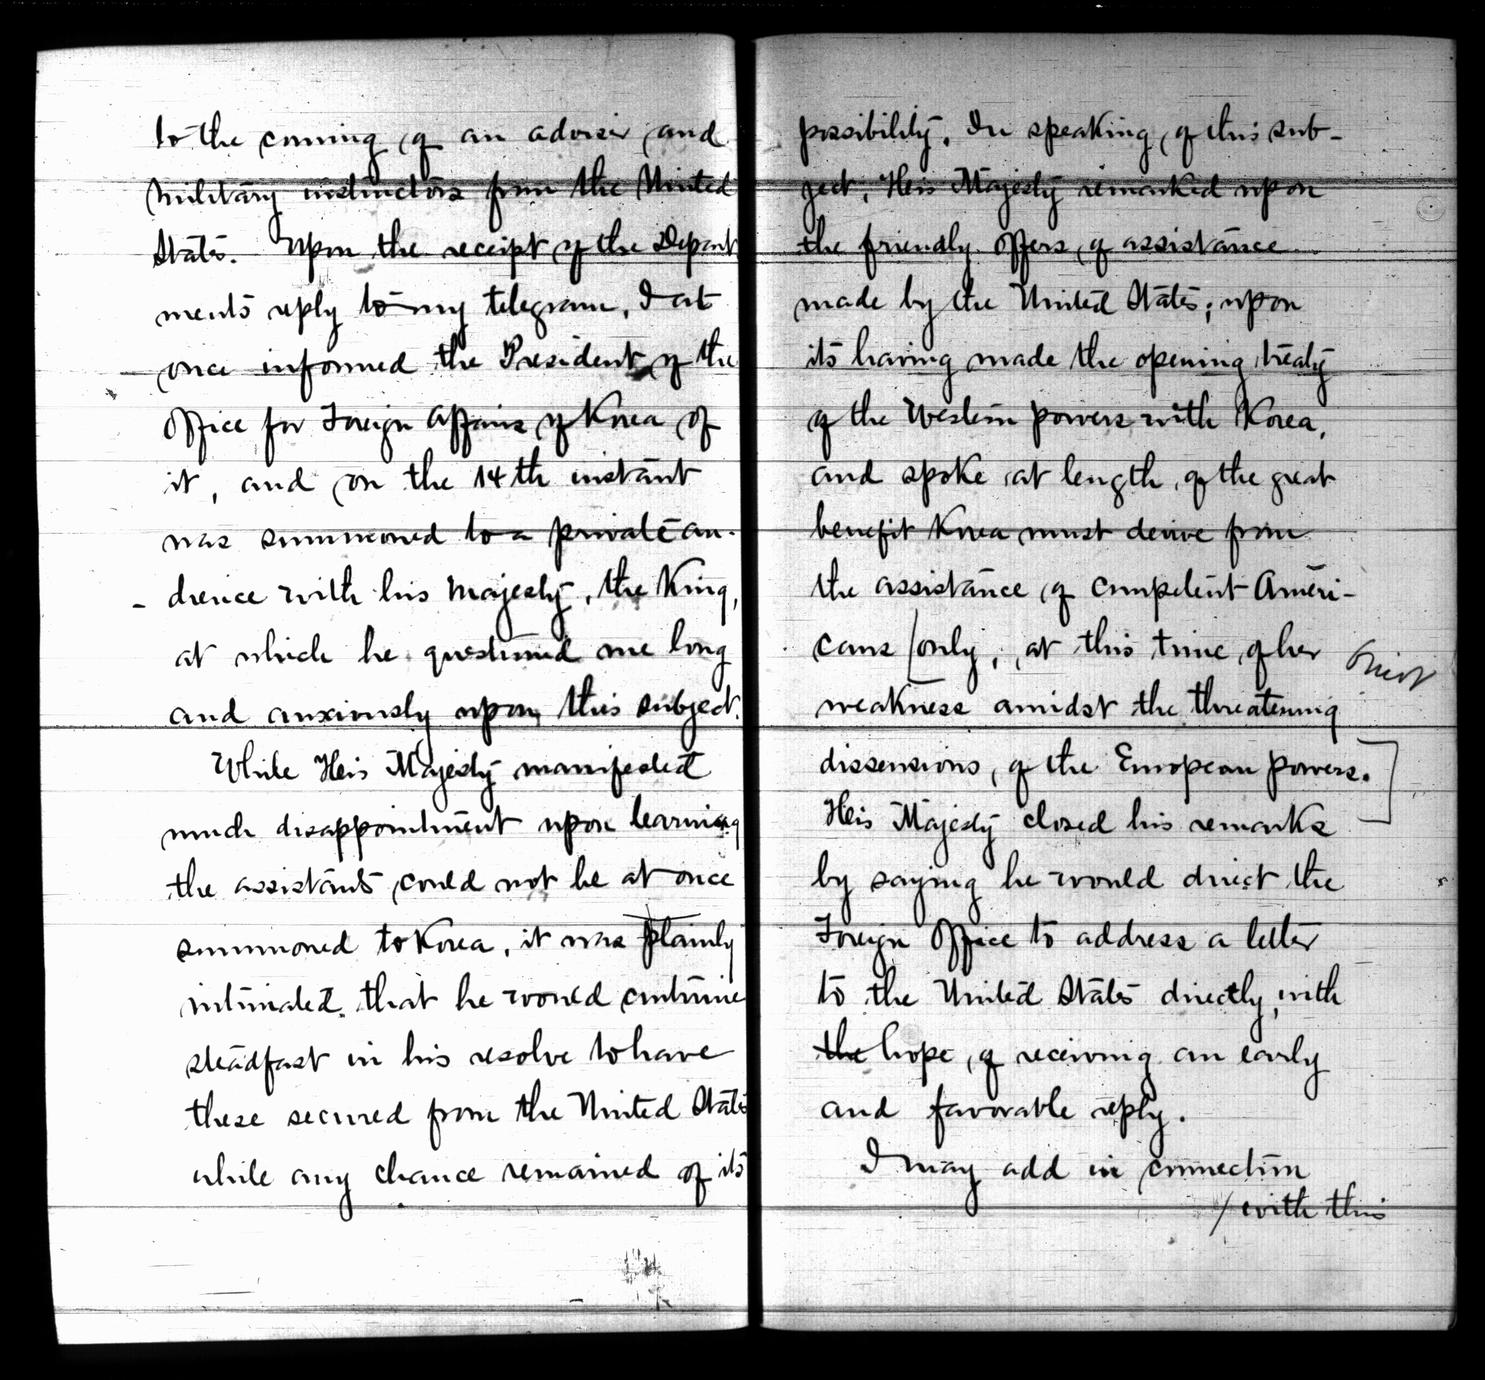 to the coming of an adviser and
military instructors from the United
States. Upon the receipt of the Depart
ments reply to my telegram, I at
once informed the President of the
Office for Foreign Affairs of Korea of
it, and on the 14th instant
was summoned to a private au-
dience with his Majesty, the King,
at which he questioned me long
and anxiously upon this subject.
While His Majesty manifested
much disappointment upon learning
the assistants could not be at once
summoned to Korea, it was plainly
intimated that he would continue
steadfast in his resolve to have
these secured from the United States
while any chance remained of its
possibility. In speaking of this sub-
ject, His Majesty remarked upon
the friendly offers of assistance
made by the United States; upon
its having made the opening treaty
of the Western powers with Korea,
and spoke at length of the great
benefit Korea must derive from
the assistance of competent Ameri-
cans [only, at this time of her
Omit
weakness amidst the threatening
dissensions, of the European powers.]
His Majesty closed his remarks
by saying he would direct the
Foreign Office to address a letter
to the United States directly, with
the hope, of receiving an early
and favorable reply.
I may add in connection
/ with this